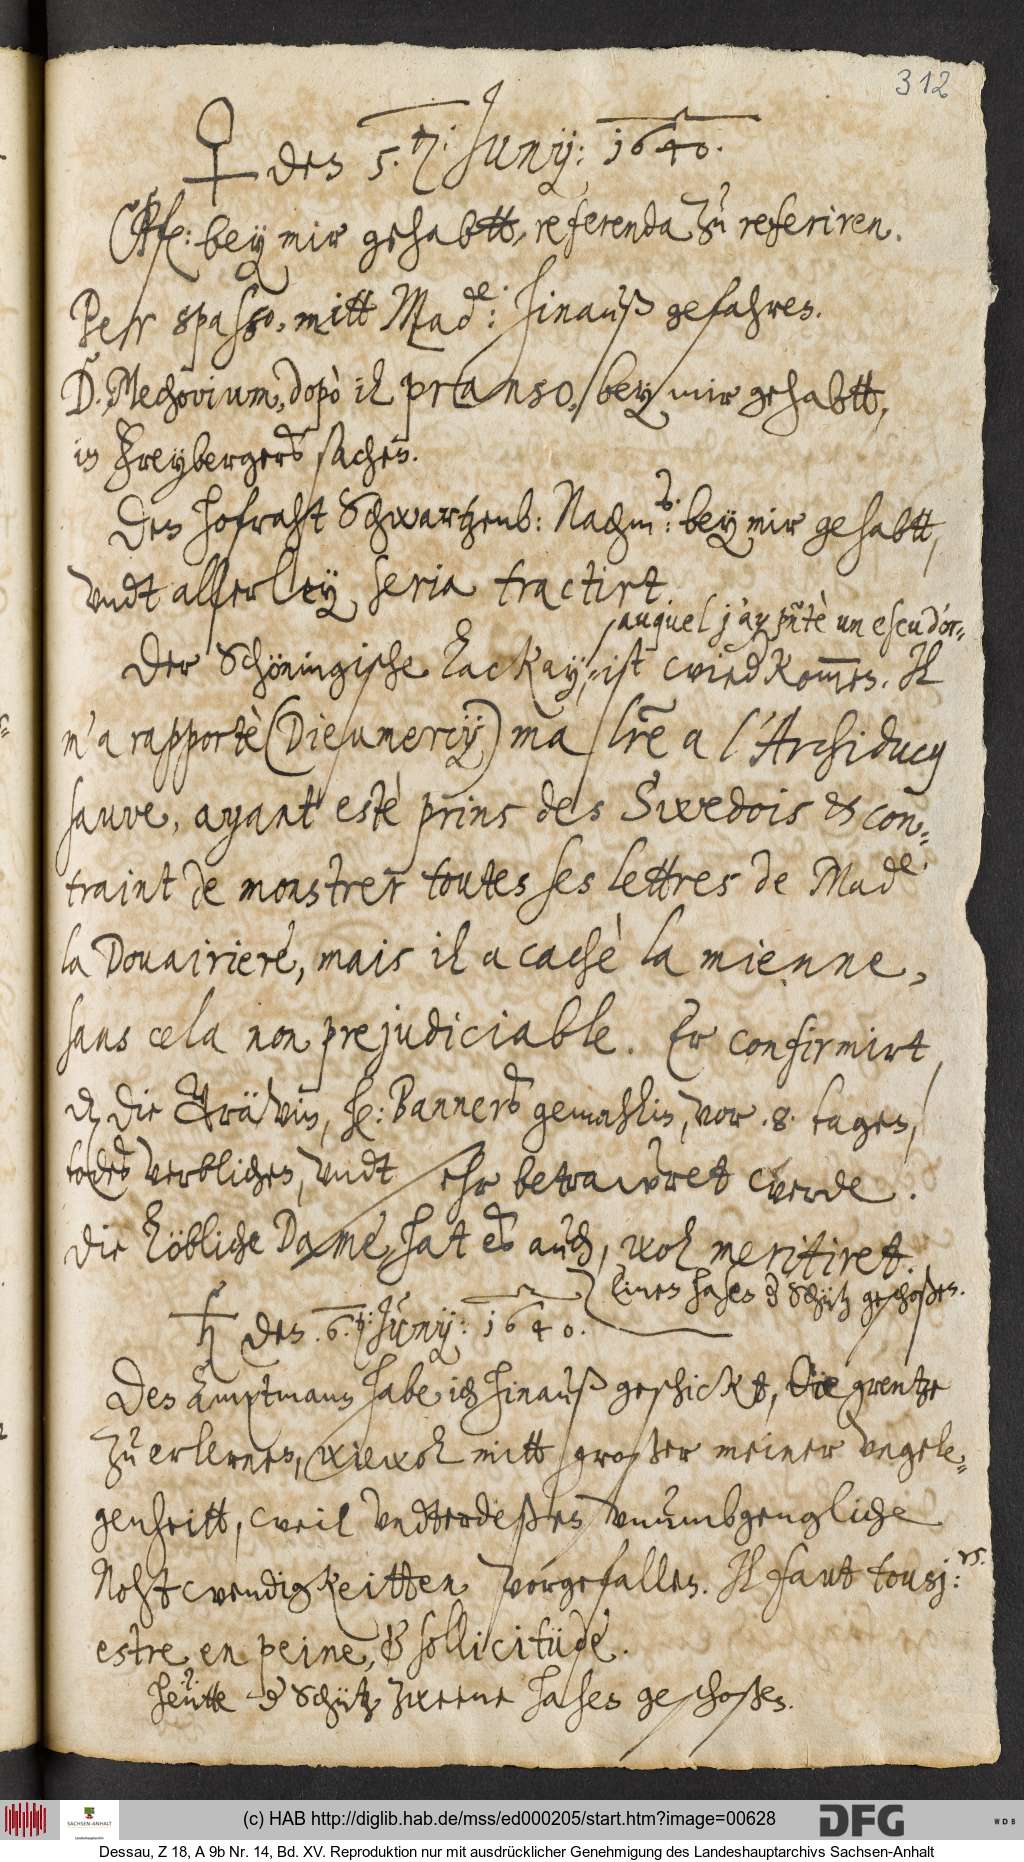 312
♀ den 5. Junij: 1640.
bey mir gehabtt, referenda zu referiren.
Per spasso, mitt Made: hinauß gefahren.
D. Mechovium, dopò il pranso, bey mir gehabtt,
in Freybergers sachen.
Den hofraht Schwartzenb: Nachm: bey mir gehabtt,
vndt allerley seria tractirt.
auquel j'ay pntè un escu d'or
Der Schöningische Lackay, ist wiedkommen. Il
m'a rapportè (Dieu mercy) ma lre a l'Archiducq
sauve, ayant estè prins des Swedois & con=
traint de monstrer toutes ses lettres de Made.
la Douairiere, mais il a cachè la mienne,
sans cela non prejudiciable. Er confirmirt,
die Grävin, H: Banners gemahlin, vor .8. tagen,
todes verblichen, vndt sehr betrawret werde.
Die löbliche Dame, hat es auch, wol meritiret.
Einen hasen d Schütz geschoßen.
♄ den .6. Junij: 1640.
Den Amptmann habe ich hinauß geschickt, die grentze
zu erlernen, wiewol mitt großer meiner vngele=
genheitt, weil vndterdeßen vnumbgengliche
Nohtwendigkeitten vorgefallen. Il faut tousj:rs
estre en peine, & sollicitüde.
Heütte d Schütz zweene hasen geschoßen.
(c) HAB http://diglib.hab.de/mss/ed000205/start.htm?image=00628
SACHSEN-ANHALT
DFG
WDB
Dessau, Z 18, A 9b Nr. 14, Bd. XV. Reproduktion nur mit ausdrücklicher Genehmigung des Landeshauptarchivs Sachsen-Anhalt